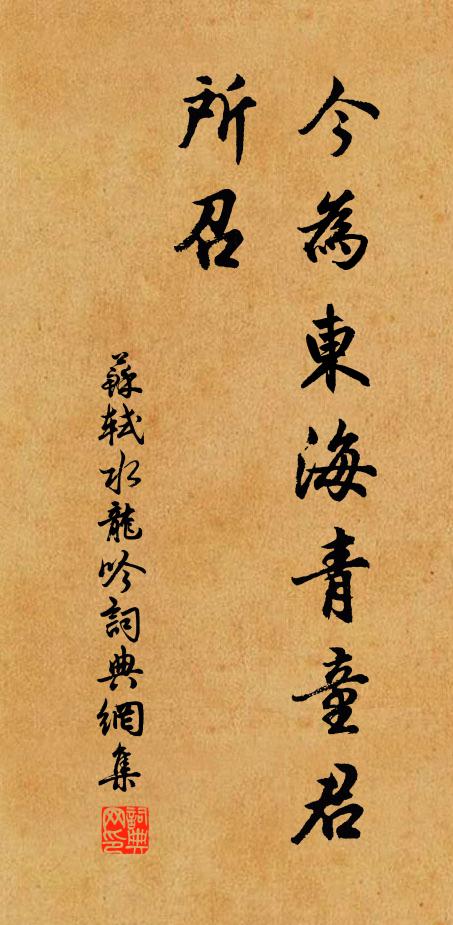 今為東海青童君
所召
蘇軾水龍吟詞典網集
詞典网印